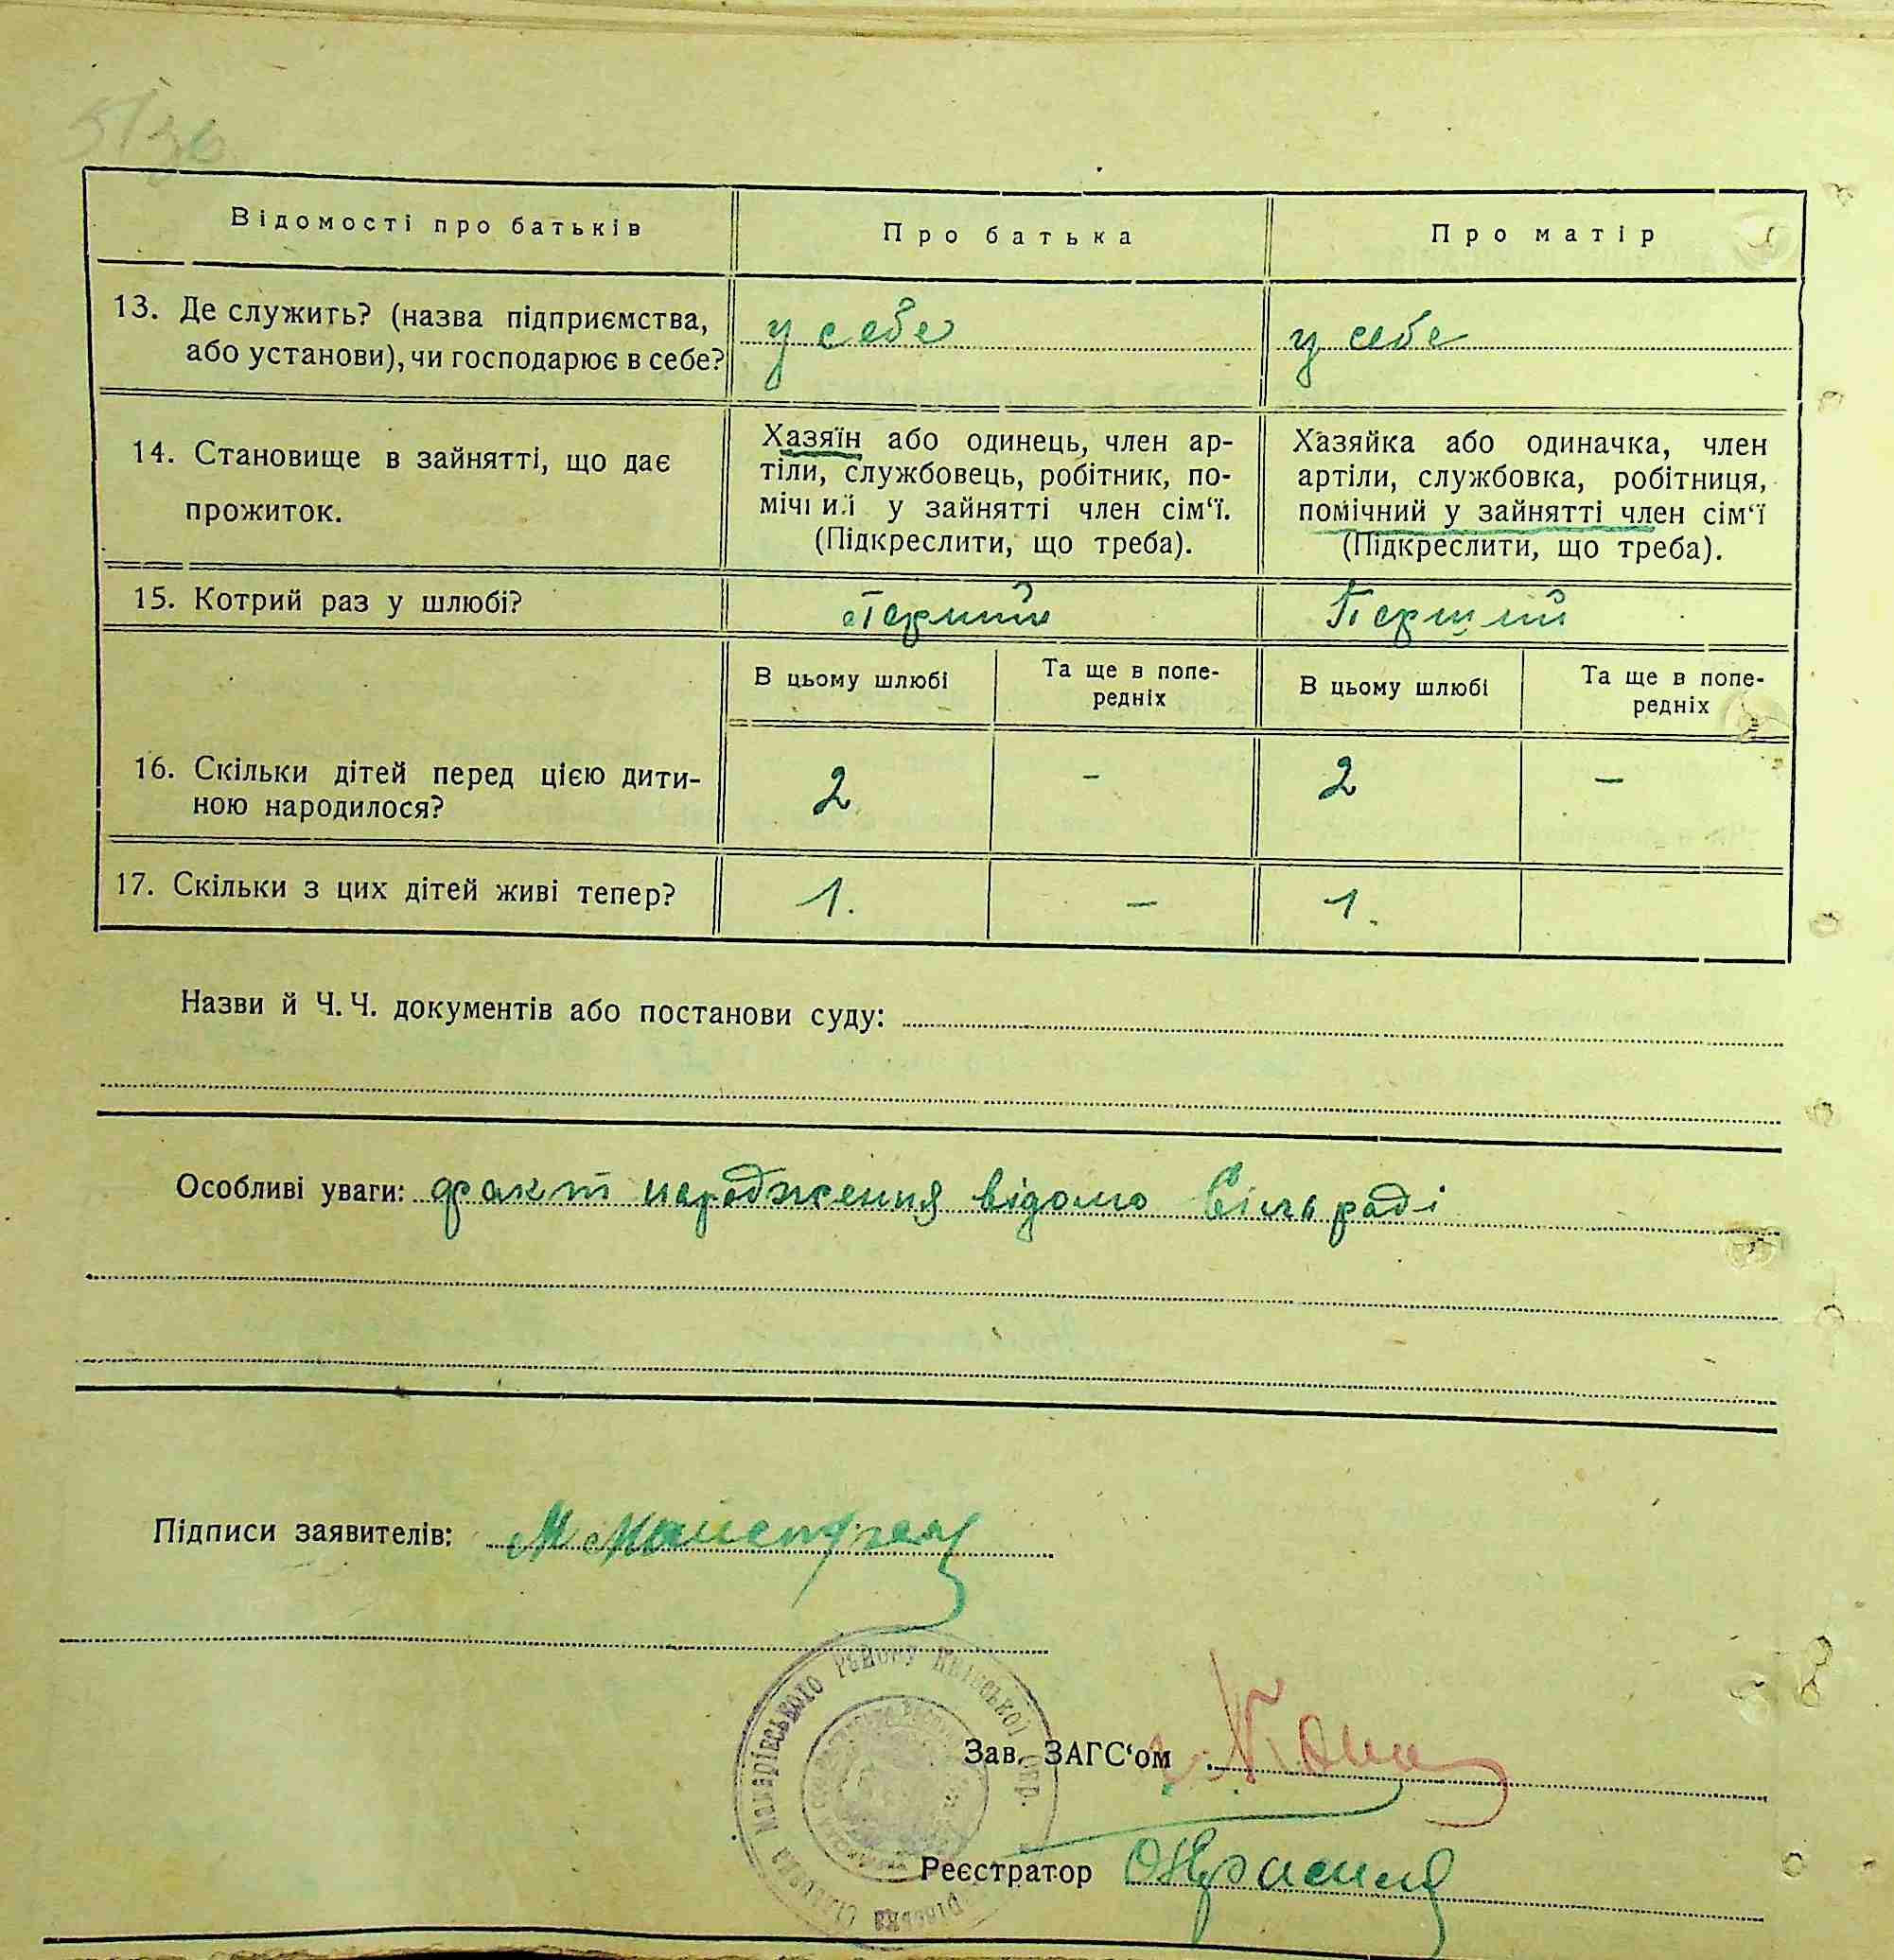 5/36
Відомості про батьків
Про батька
Про матір
13. Де служить? (назва підприємства,
або установи), чи господарює в себе?
у себе
у себе
14. Становище в зайнятті, що дає
прожиток.
Хазяїн або одинець, член ар-
тіли, службовець, робітник, по-
мічний у зайнятті член сім‘ї.
(Підкреслити, що треба).
Хазяйка або одиначка, член
артіли, службовка, робітниця,
помічний у зайнятті член сім‘ї
(Підкреслити, що треба).
15. Котрий раз у шлюбі?
Перший
Перший
В цьому шлюбі
Та ще в попе-
редніх
В цьому шлюбі
Та ще в попе-
редніх
16. Скільки дітей перед цією дити-
ною народилося?
2
-
2
-
17. Скільки з цих дітей живі тепер?
1.
-
1.
Назви й Ч. Ч. документів або постанови суду:
Особливі уваги: факт народження відомо Сільраді
Підписи заявителів:
Макарівського району Київської окр.
Зав. ЗАГС‘ом
Реєстратор